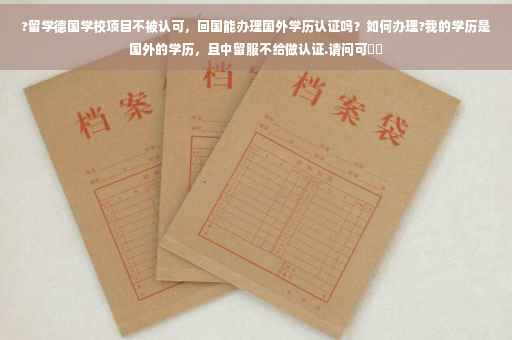 ?留学德国学校项目不被认可，回国能办理国外学历认证吗？如何办理?我的学历是
国外的学历，且中留服不给做认证.请问可
档案
档案
档案袋